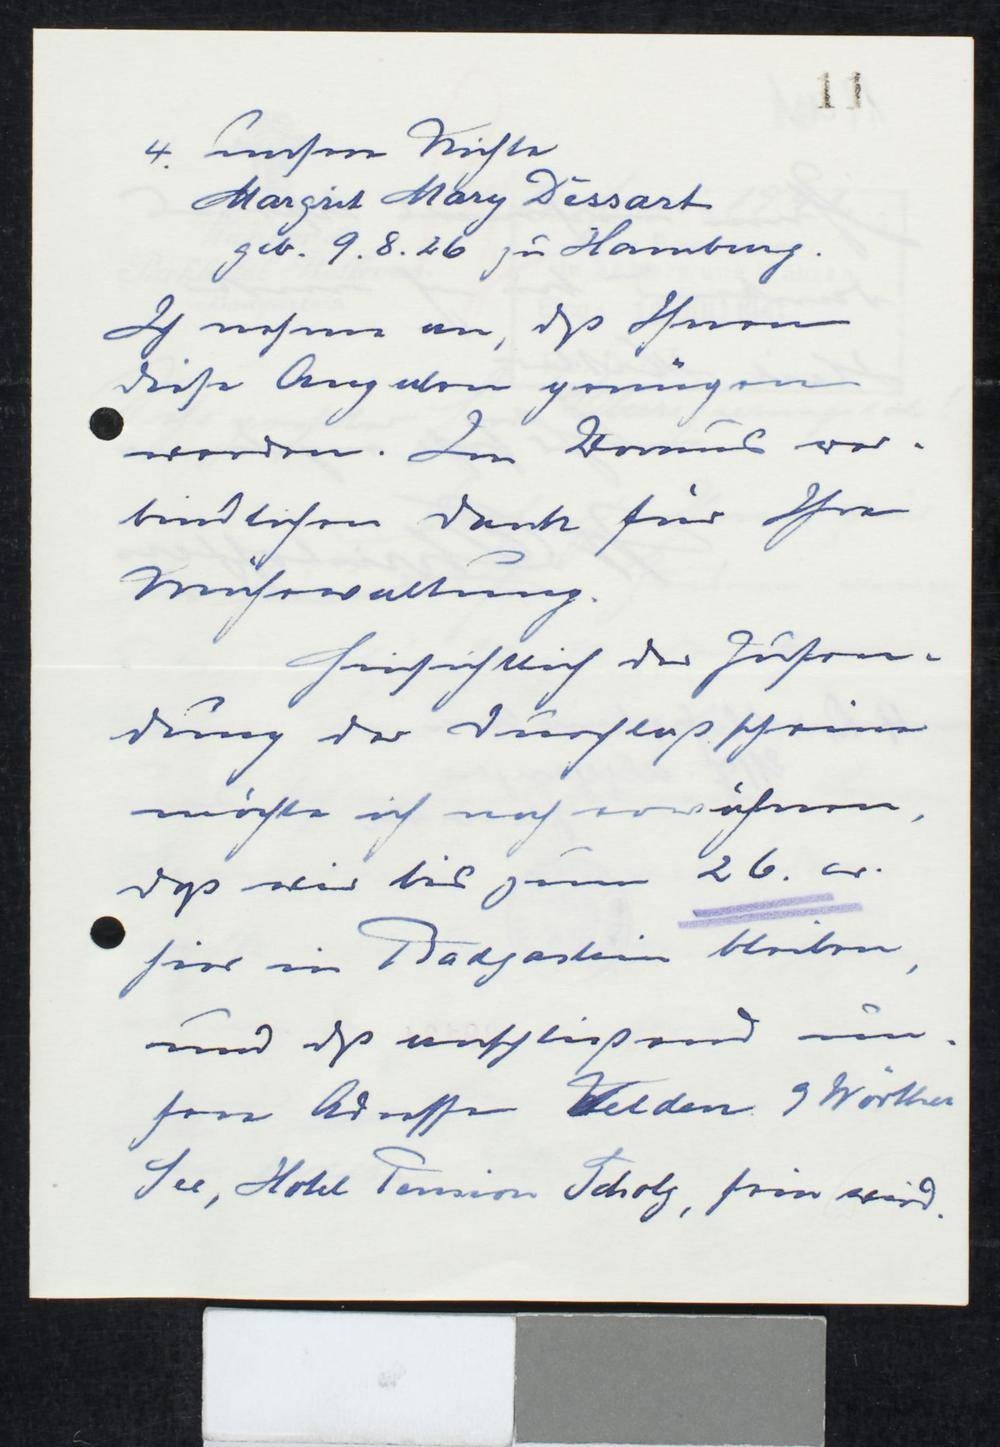 11
4. unsere Nichte
Margrit Mary Dessart
geb. 9.8.26 zu Hamburg.
Ich nehme an, daß Ihnen
diese Angaben genügen
werden. Im Voraus ver-
bindlichen Dank für Ihre
Mühewaltung.
Hinsichtlich der Zusen-
dung der Durchlaßscheine
möchte ich noch erwähnen,
daß wir bis zum 26. cr.
hier in Badgastein bleiben,
und daß anschließend un-
sere Adresse Velden Wörther
See, Hotel Pension Scholz, sein wird.